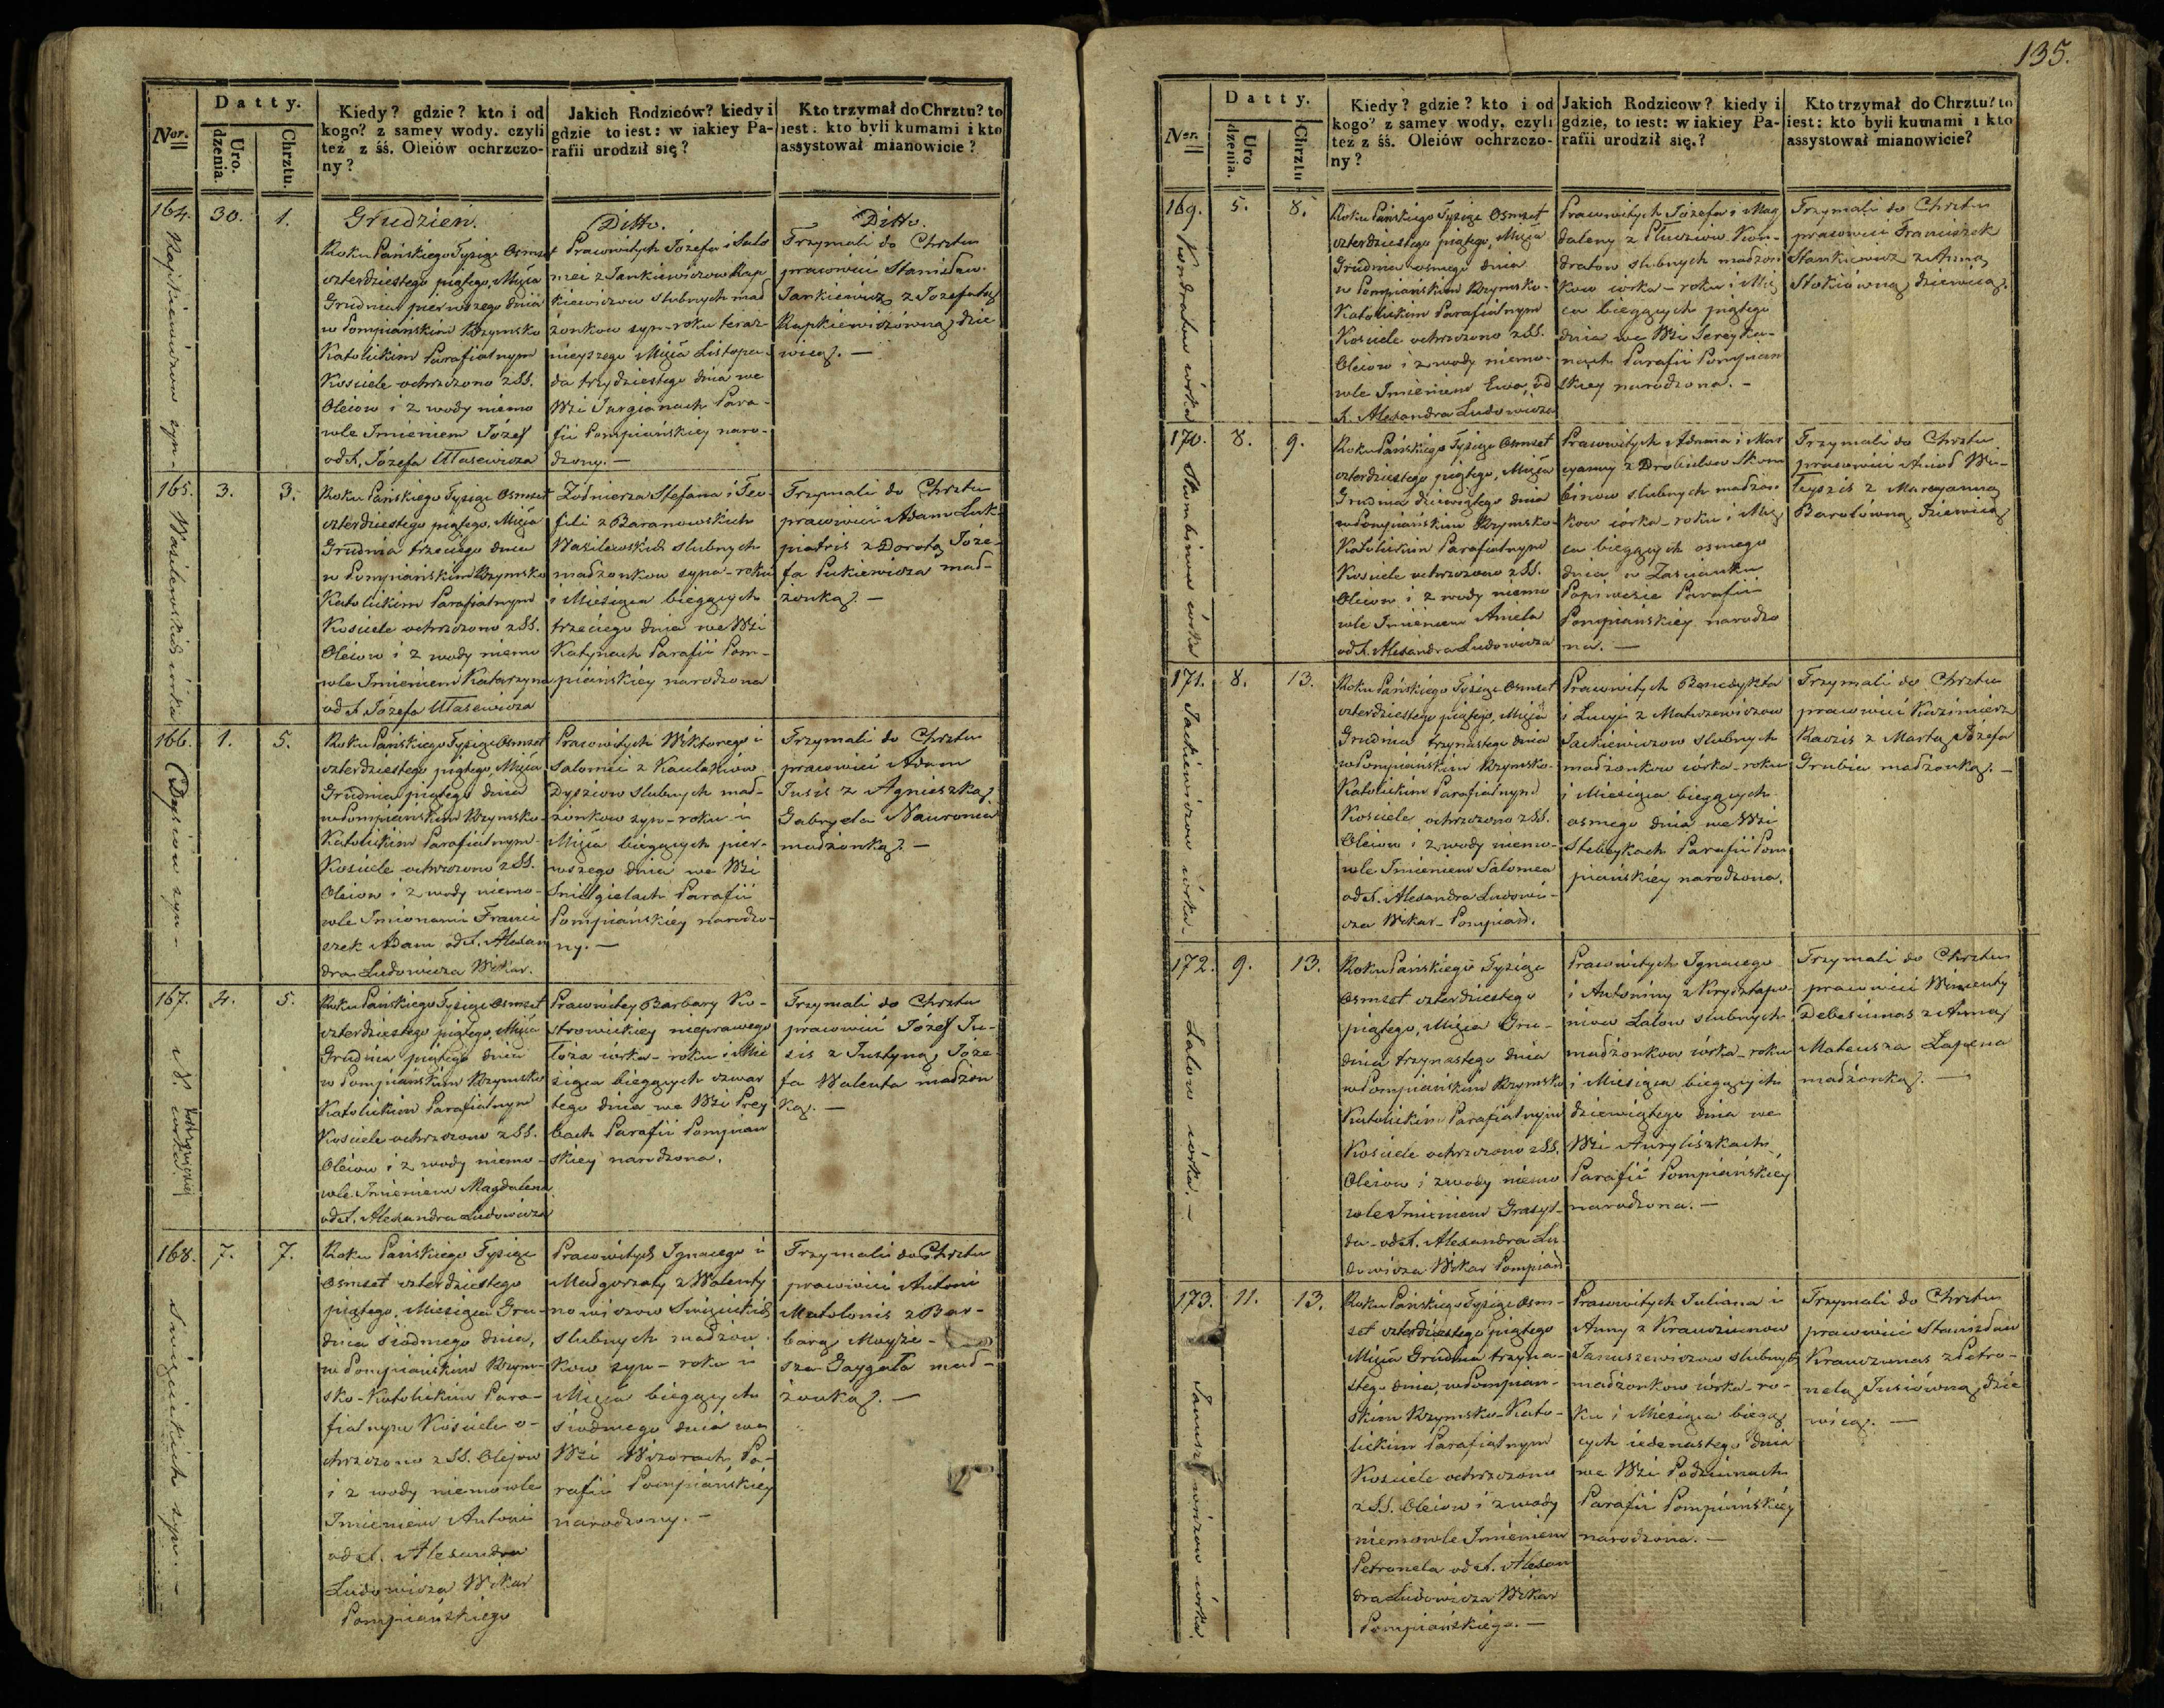 135.
Datty.
Nr.
Uro.
dzenia.
Chrztu.
Kiedy? gdzie? kto i od
kogo? z samey wody. czyli
też z śś. Oleiów ochrzczo-
ny?
Jakich Rodziców? kiedy i
gdzie to iest: w iakiey Pa-
rafii urodził się?
Kto trzymał do Chrztu? to
iest: kto byli kumami i kto
assystował mianowicie?
164. 30. 1.
syn -
Grudzień.
Roku Pańskiego Tysiąc Osmset
czterdziestego piątego, Mca
Grudnia pierwszego dnia
w Pompiańskim Rzymsko
Katolickim Parafialnym
Kosciele ochrzczono z SS.
Oleiow i z wody niemo
wle Imieniem Józef
od X. Józefa
Ditto.
Prawowitych Józefa i Salo
mei z Jankiewiczow Rap
kiewiczow slubnych mał
żonkow syn - roku teraz
nieyszego Mca Listopa-
da trzydziestego dnia we
Wsi Jurgianach Para-
fii Pompiańskiey naro-
dzony. -
Ditto.
Trzymali do Chrztu
prawowici Stanisław
Jankiewicz z Jozefatą
Rapkiewiczówną dzie
wicą. -
165. 3. 3.
Wasilewskich córka
Roku Pańskiego Tysiąc Osmset
czterdziestego piątego, Mca
Grudnia trzeciego dnia
w Pompiańskim Rzymsko
Katolickim Parafialnym
Kosciele ochrzczono z SS.
Oleiow i z wody niemo
wle Imieniem Katarzyna
od X. Jozefa
Żołnierza Stefana i Teo
fili z Baranowskich
Wasilewskich slubnych
małżonkow syna - roku
i Miesiąca bieżących
trzeciego dnia we Wsi
Katynach Parafii Pom-
piańskiey narodzona
Trzymali do Chrztu
prawowici Adam Luk-
piatris z Dorotą Józe-
fa Pukiewicza mał-
żonką. -
166. 1. 5.
Dysiow syn -
Roku Pańskiego Tysiąc Osmset
czterdziestego piątego, Mca
Grudnia piątego dnia
w Pompiańskim Rzymsko-
Katolickim Parafialnym
Kosciele ochrzczono z SS.
Oleiow i z wody niemo-
wle Imionami Franci
szek Adam od X. Alexan
dra Ludowicza Wikar.
Prawowitych Wiktorego i
Salomei z
Dysziow slubnych mał-
żonkow syn - roku i
Mca bieżących pier-
wszego dnia we Wsi
Parafii
Pompiańskiey narodzo-
ny. -
Trzymali do Chrztu
prawowici Adam
Jusis z Agnieszką
Gabryela
małżonką. -
167. 4. 5.
N. córka
Roku Pańskiego Tysiąc Osmset
czterdziestego piątego, Mca
Grudnia piątego dnia
w Pompiańskim Rzymsko
Katolickim Parafialnym
Kosciele ochrzczono z SS.
Oleiow i z wody niemo-
wle Imieniem Magdalena
od X. Alexandra Ludowicza
Prawowitey Barbary Ko-
strowickiey nieprawego
łoża córka - roku i Mie
siąca bieżących czwar
tego dnia we Wsi Prey
bach Parafii Pompian
skiey narodzona.
Trzymali do Chrztu
prawowici Józef Ju-
sis z Justyną Józe-
fa Walenta małżon
ką. -
168. 7. 7.
syn. -
Roku Pańskiego Tysiąc
Osmset czterdziestego
piątego, Miesiąca Gru-
dnia siodmego dnia,
w Pompiańskim Rzym-
sko-Katolickim Para-
fialnym Kosciele o-
chrzczono z SS. Olejow
i z wody niemowle
Imieniem Antoni
od X. Alexandra
Ludowicza Wikar
Pompiańskiego
Prawowitych Ignacego i
Małgorzaty z Walenty
nowiczow
slubnych małżon
kow syn - roku i
Mca bieżących
siodmego dnia we
Wsi Wizorach Pa-
rafii Pompiańskiey
narodzony. -
Trzymali do Chrztu
prawowici Antoni
Matolonis z Bar-
barą Moyże-
sza Gaygała mał-
żonką. -
Datty.
Nr.
Uro
dzenia.
Chrztu
Kiedy? gdzie? kto i od
kogo? z samey wody. czyli
też z śś. Oleiów ochrzczo-
ny?
Jakich Rodzicow? kiedy i
gdzie, to iest: w iakiey Pa-
rafii urodził się.?
Kto trzymał do Chrztu? to
iest: kto byli kumami i kto
assystował mianowicie?
169. 5. 8.
Kondratow córka
Roku Pańskiego Tysiąc Osmset
czterdziestego piątego, Mca
Grudnia osmego dnia
w Pompiańskim Rzymsko-
Katolickim Parafialnym
Kosciele ochrzczono z SS.
Oleiow i z wody niemo-
wle Imieniem Ewa od
X. Alexandra Ludowicza
Prawowitych Józefa i Mag
daleny z Kon-
dratow slubnych małżon
kow córka - roku i Mię
ca bieżących piątego
dnia we Wsi Jereyka-
nach Parafii Pompian
skiey narodzona. -
Trzymali do Chrztu
prawowici Franciszek
Stankiewicz z Anną
Stokiówną dziewicą.
170. 8. 9.
Skombinow córka
Roku Pańskiego Tysiąc Osmset
czterdziestego piątego, Mca
Grudnia dziewiątego dnia
w Pompiańskim Rzymsko-
Katolickim Parafialnym
Kosciele ochrzczono z SS.
Oleiow i z wody niemo
wle Imieniem Aniela
od X. Alexandra Ludowicza
Prawowitych Adama i Mar
cyanny z Drobisow Skom
binow slubnych małżon
kow córka - roku i Mię
ca bieżących osmego
dnia w Zascianku
Papiwezie Parafii
Pompiańskiey narodzo
na. -
Trzymali do Chrztu
prawowici Wi-
z Marcyanną
Barolówną dziewicą
171. 8. 13.
Jackiewiczow córka -
Roku Pańskiego Tysiąc Osmset
czterdziestego piątego, Mca
Grudnia trzynastego dnia
w Pompiańskim Rzymsko-
Katolickim Parafialnym
Kosciele ochrzczono z SS.
Oleiow i z wody niemo-
wle Imieniem Salomea
od X. Alexandra Ludowi-
cza Wikar. Pompiań.
Prawowitych Benedykta
i Lucyi z Matuzewiczow
Jackiewiczow slubnych
małżonkow córka - roku
i Miesiąca bieżących
osmego dnia we Wsi
Stebeykach Parafii Pom
piańskiey narodzona.
Trzymali do Chrztu
prawowici Kazimierz
Razis z Martą Józefa
Grubia małżonką. -
172. 9. 13.
Lalow córka. -
Roku Pańskiego Tysiąc
Osmset czterdziestego
piątego, Mca Gru-
dnia trzynastego dnia
w Pompiańskim Rzymsko
Katolickim Parafialnym
Kosciele ochrzczono z SS.
Oleiow i z wody niemo
wle Imieniem Grasyl-
da - od X. Alexandra Lu
dowicza Wikar Pompiań
Prawowitych Ignacego
i Antoniny z Krysztapo-
niow Lalow slubnych
małżonkow córka - roku
i Miesiąca bieżących
dziewiątego dnia we
Wsi Auryliszkach
Parafii Pompiańskiey
narodzona. -
Trzymali do Chrztu
prawowici Wincenty
Debesiunas z Anną
Mateusza Łapena
małżonką. -
173. 11. 13.
Januszewiczow córka.
Roku Pańskiego Tysiąc Osm-
set czterdziestego piątego
Mca Grudnia trzyna-
stego dnia, w Pompian-
skim Rzymsko-Kato-
lickim Parafialnym
Kosciele ochrzczono
z SS. Oleiow i z wody
niemowle Imieniem
Petronela od X. Alexan
dra Ludowicza Wikar
Pompiańskiego. -
Prawowitych Juliana i
Anny z Krauziunow
Januszewiczow slubnych
małżonkow córka - ro-
ku i Miesiąca bieżą
cych iedenastego dnia
we Wsi Podziunach
Parafii Pompiańskiey
narodzona. -
Trzymali do Chrztu
prawowici Stanisław
Krauzunas z Petro-
nelą Jusiówną dzie
wicą. -